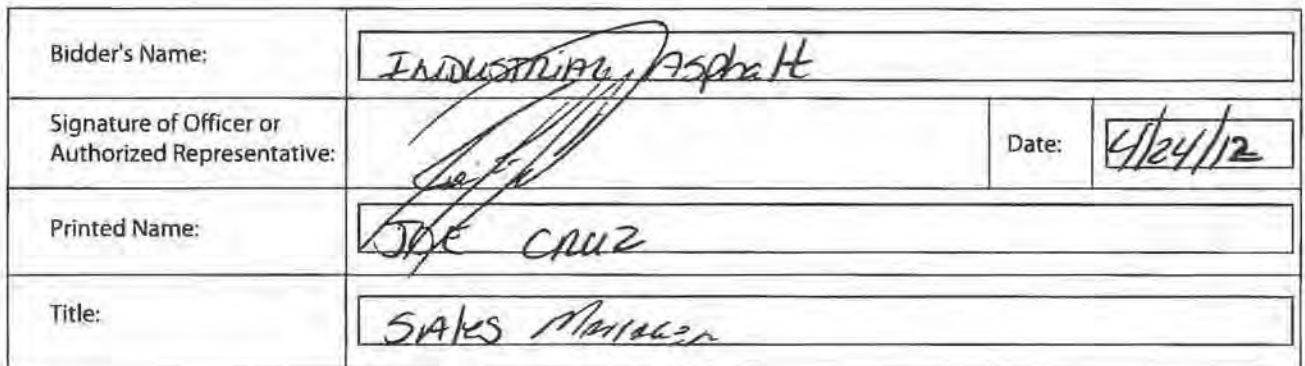 Bidder's Name: INDUSTRIAL Asphalt
Signature of Officer or
Authorized Representative:
Date: 4/24/12
Printed Name: JOE CRUZ
Title: SAles Manager